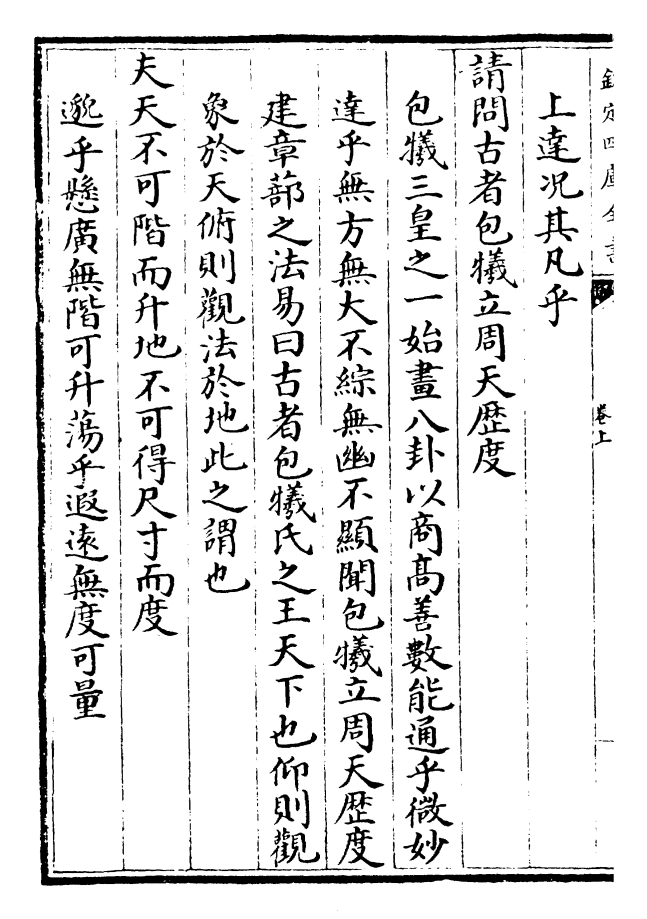 欽定四庫全書
卷上
上達况其凡乎
請問古者包犧立周天歴度
包犧三皇之一始畫八卦以商髙善數能通乎微妙
達乎無方無大不綜無幽不顯聞包犧立周天歴度
建章蔀之法易曰古者包犧氏之王天下也仰則觀
象於天俯則觀法於地此之謂也
夫天不可階而升地不可得尺寸而度
邈乎懸廣無階可升蕩乎遐遠無度可量